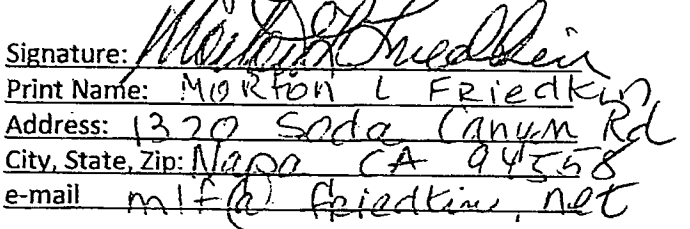 Signature: Morton L Friedkin
Print Name: Morton L Friedkin
Address: 1320 Soda Canyon Rd
City, State, Zip: Napa CA 94558
e-mail mlf@friedkin.net